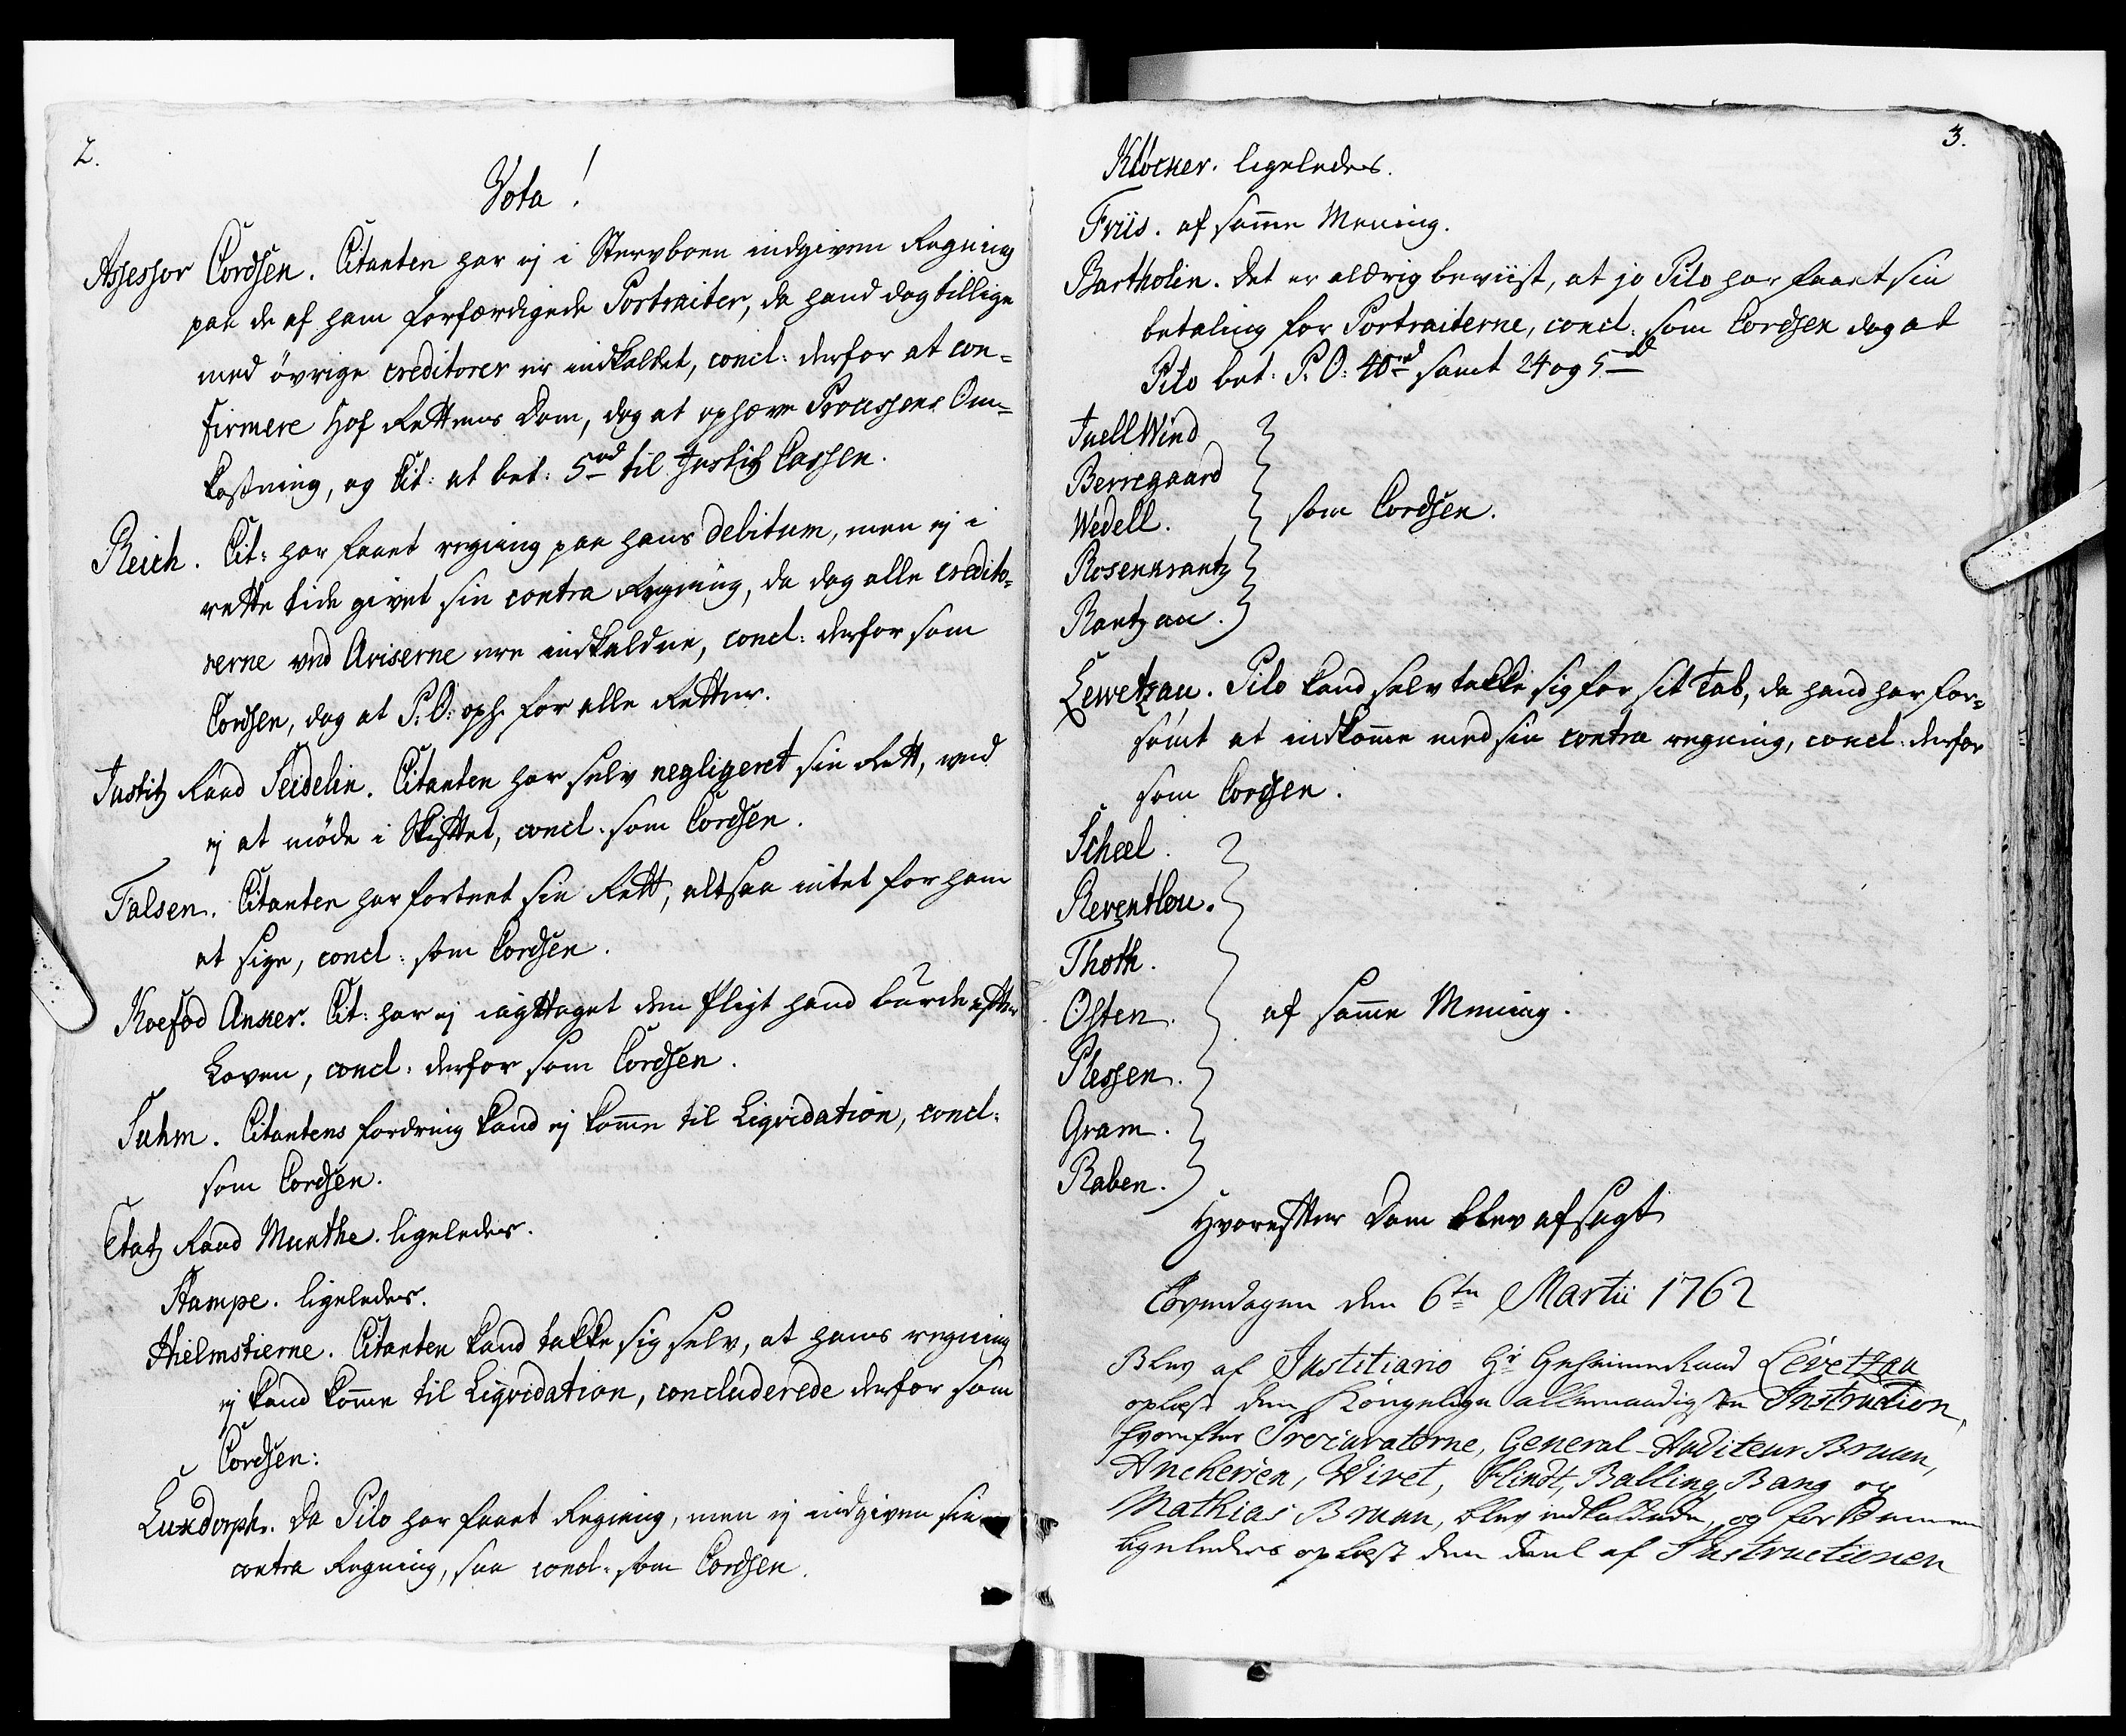 2.
Vota!
Assessor Cordsen. Citanten har ej i Stervboen indgiven Regning
paa de af ham forfærdigede Portraiter, da hand dog tillige
med øvrige creditorer er indkaldet, concl: derfor at con=
firmere Hof Rettens Dom, dog at ophæve Processens Om=
kostning, og Cit: at bet: 5rd til Justitz Cassen.
Reich. Cit: har faaet regning paa hans debitum, men ej i
rette tide givet sin contra Regning, da dog alle credito=
rerne ved Aviserne ere indkaldne, concl: derfor som
Cordsen, dog at P: O: oph. for alle Retter.
Justitz Raad Seidelin. Citanten har selv negligeret sin Rett, ved
ej at møde i Skiftet, concl: som Cordsen.
Falsen. Citanten har fortiet sin Rett, altsaa intet for ham
at sige, concl: som Cordsen.
Koefod Anker. Cit: har ej iagttaget den Pligt hand burde efter
Loven, concl: derfor som Cordsen.
Suhm. Citantens fordring kand ej komme til Liqvidation, concl:
som Cordsen.
Etatz Raad Munthe. ligeledes.
Stampe. ligeledes.
Hielmstierne. Citanten kand takke sig selv, at hans regning
ej kand komme til Liqvidation, concluderede derfor som
Cordsen:
Luxdorph. Da Pilo har faaet Regning, men ej indgiven sin
contra Regning, saa concl: som Cordsen.
3.
Klöcker. ligeledes.
Friis. af samme Mening.
Bartholin. Det er aldrig beviist, at jo Pilo har faaet sin
betaling for Portraiterne, concl: som Cordsen dog at
Pilo bet: P: O: 40rd samt 24 og 5rd
Juell Wind
Berregaard
Wedell. som Cordsen.
Rosenkrantz
Rantzau.
Lewetzau. Pilo kand selv takke sig for sit Tab, da hand har for=
sömt at indkomme med sin contra regning, concl: derfor
som Cordsen.
Scheel.
Reventlou.
Thott.
Osten. af samme Mening.
Plessen.
Gram.
Raben.
Hvorefter Dom blev afsagt
Löverdagen den 6te Martii 1762
Blev af Justitiario Hr Geheimeraad Levetzau
oplæst den Kongelige allernaadigste Instruction,
hvorefter Procuratorne, General-Auditeur Bruun,
Anchersen, Wivet, Flindt, Balling, Bang og
Mathias Bruun, blev indkaldede, og for dennem
ligeledes oplæst den Deel af Instructionen